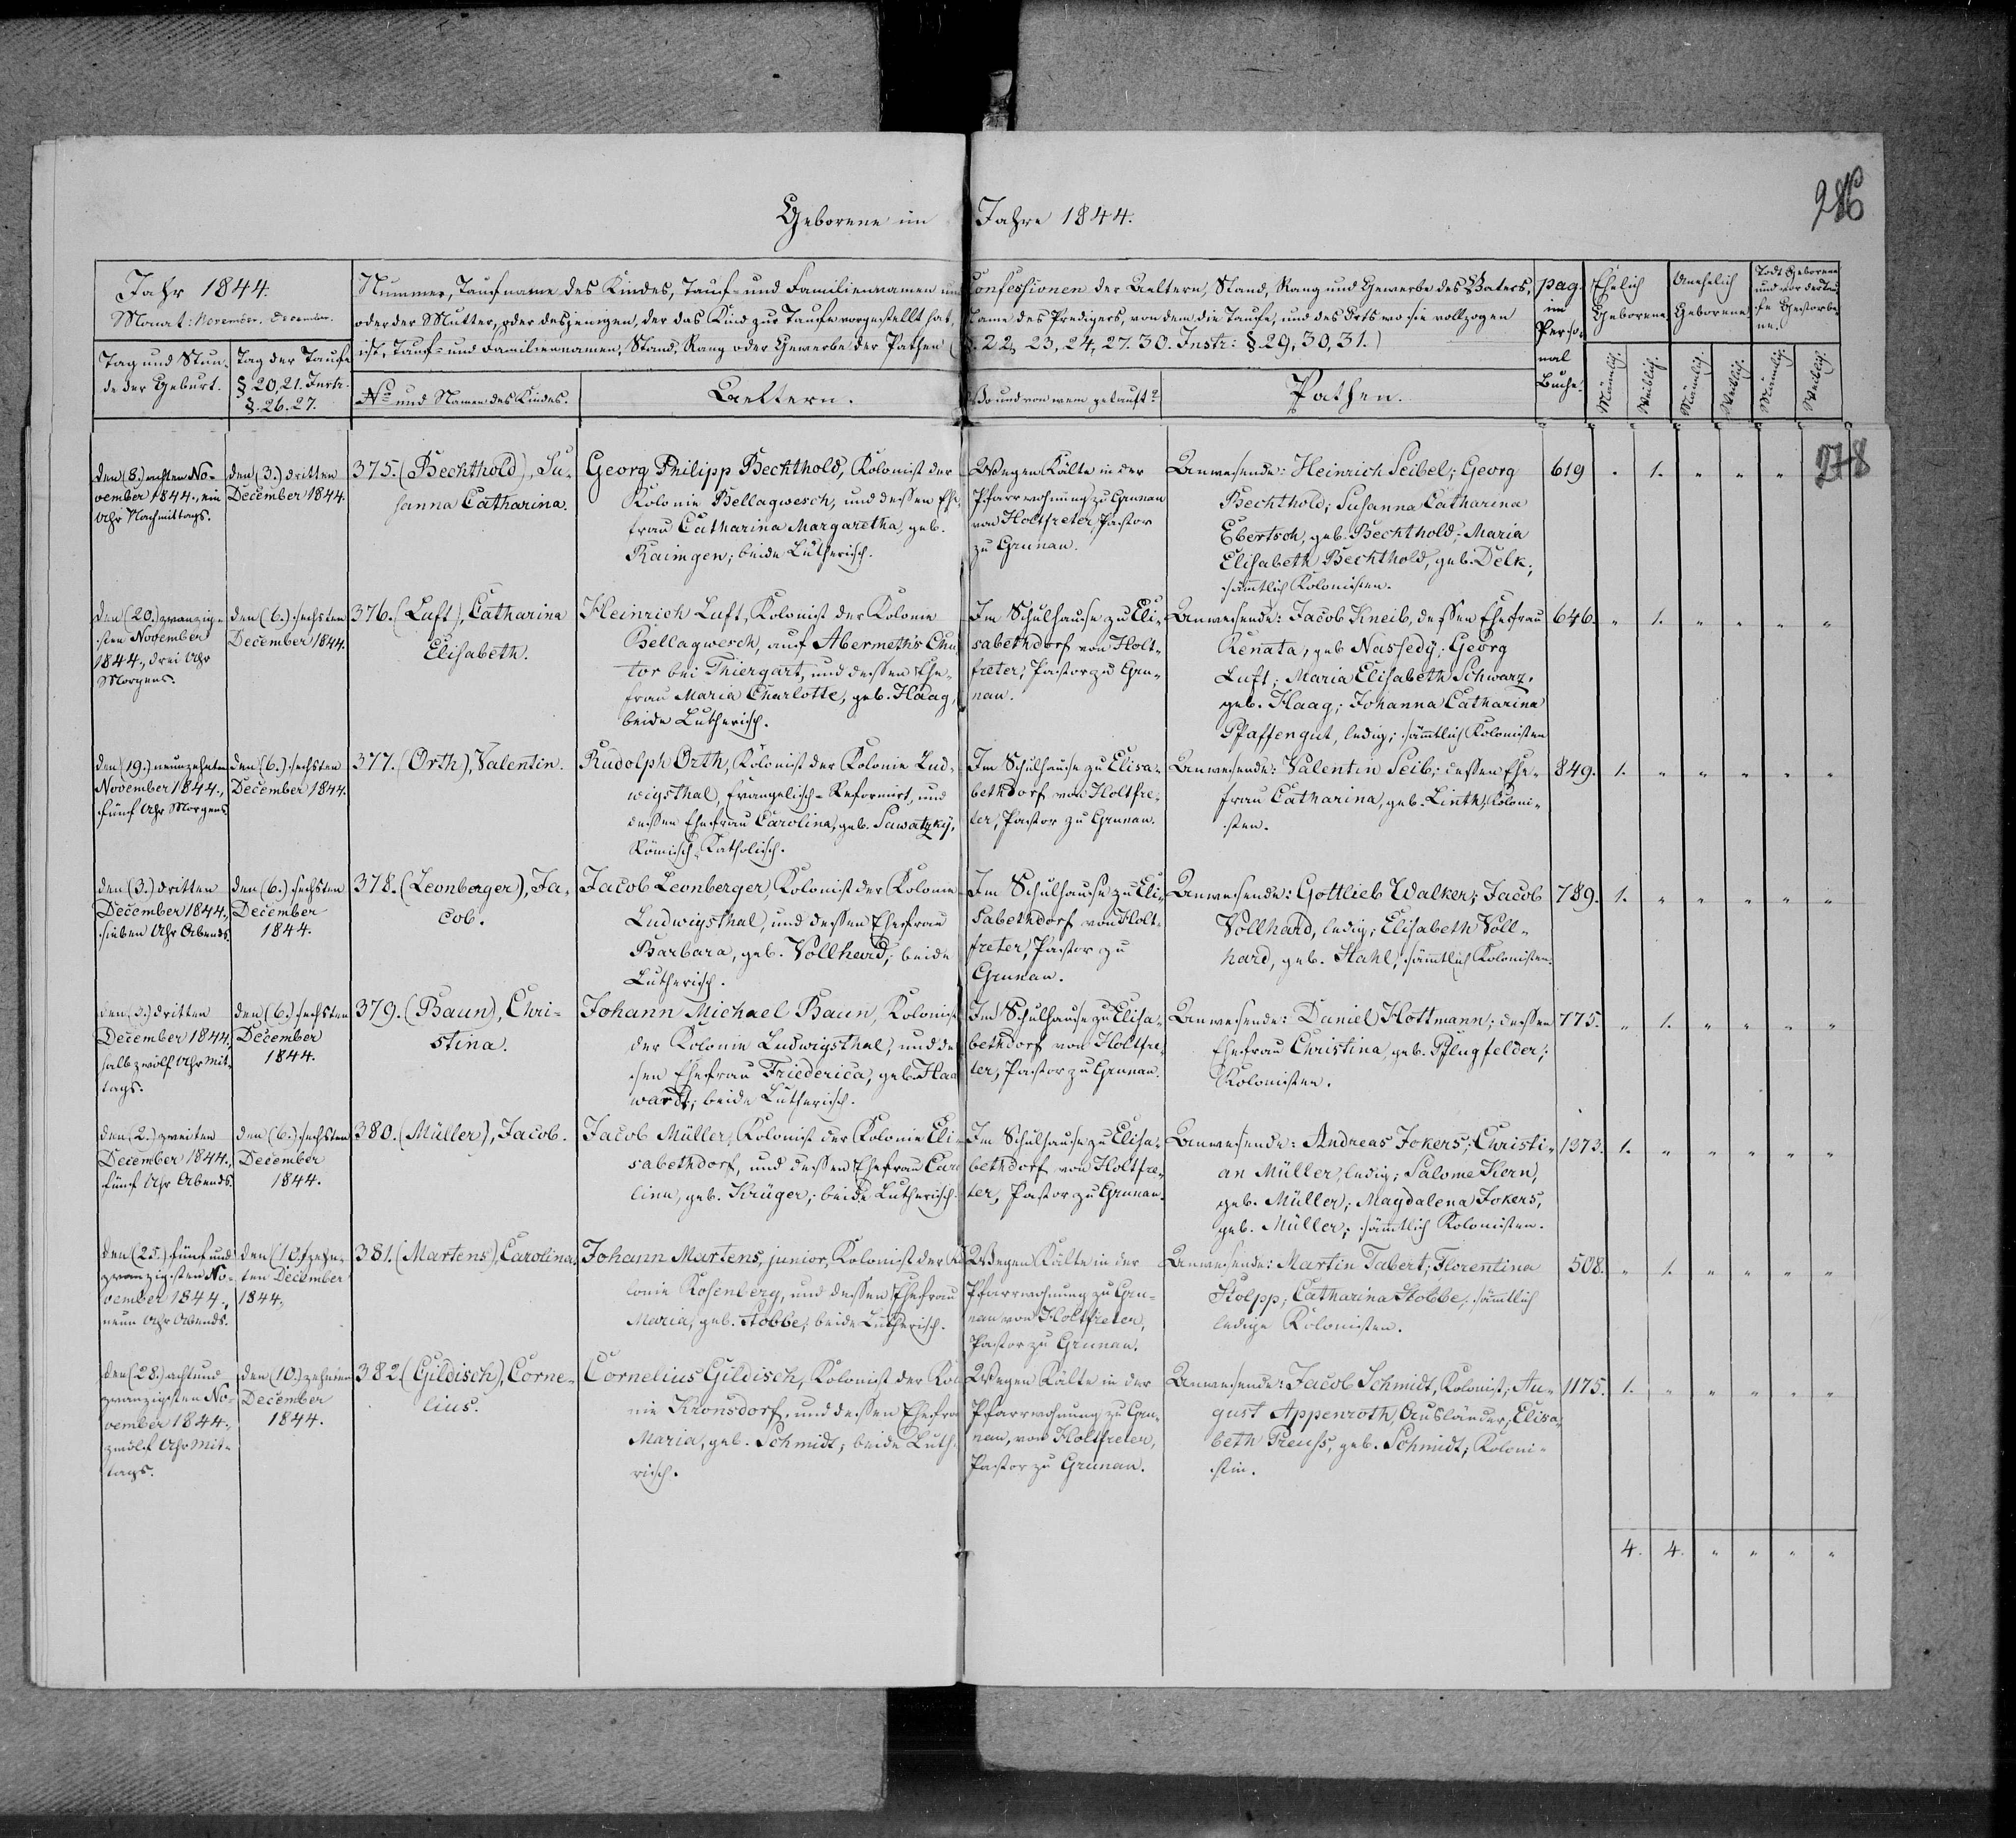 Geborene im Jahre 1844.
286
278
Jahr 1844.
Monat: November. December.
Tag und Stun-
de der Geburt.
Tag der Taufe
§ 20, 21. Instr.
§. 26. 27.
Nummer, Taufname des Kindes, Tauf- und Familiennamen und Confessionen der Aeltern, Stand, Rang und Gewerbe des Vaters,
oder der Mutter, oder desjenigen, der das Kind zur Taufe vorgestellt hat, Name des Predigers, von dem die Taufe, und des Orts wo sie vollzogen
ist, Tauf- und Familiennamen, Stand, Rang oder Gewerbe der Pathen (§. 22, 23, 24, 27. 30. Instr: §. 29, 30, 31.)
No und Namen des Kindes.
Aeltern.
Wo und von wem getauft?
Pathen.
pag.
im
Perso-
nal
Buche.
Ehelich
Geborene
Unehelich
Geborene
Todt Geborene
und vor der Tau-
fe Gestorbe-
ne.
Männlich.
Weiblich.
Männlich.
Weiblich.
Männlich.
Weiblich.
den (8.) achten No-
vember 1844., ein
Uhr Nachmittags.
den (3.) dritten
December 1844.
375. (Bechthold), Su-
sanna Catharina.
Georg Philipp Bechthold, Kolonist der
Kolonie Bellagwesch, und dessen Ehe-
frau Catharina Margaretha, geb.
Raimgen; beide Lutherisch.
Wegen Kälte in der
Pfarrwohnung zu Grunau
von Holtfreter, Pastor
zu Grunau.
Anwesende: Heinrich Seibel; Georg
Bechthold; Susanna Catharina
Ebertsch, geb. Bechthold; Maria
Elisabeth Bechthold, geb. Delk;
sämtlich Kolonisten.
619 " 1. " " "
den (20.) zwanzig-
sten November
1844., drei Uhr
Morgens.
den (6.) sechsten
December 1844.
376. (Luft), Catharina
Elisabeth.
Heinrich Luft, Kolonist der Kolonie
Bellagwesch, auf Abermeth's Chu-
tor bei Thiergart, und dessen Ehe-
frau Maria Charlotte, geb. Haag,
beide Lutherisch.
Im Schulhause zu Eli-
sabethdorf von Holt-
freter, Pastor zu Gru-
nau.
Anwesende: Jacob Kneib, dessen Ehefrau
Renata, geb. Nassedy; Georg
Luft; Maria Elisabeth Schwarz,
geb. Haag; Johanna Catharina
Pfaffengut, ledig; sämmtlich Kolonisten
646. " 1. " " " "
den (19.) neunzehnten
November 1844.,
fünf Uhr Morgens
den (6.) sechsten
December 1844.
377. (Orth), Valentin.
Rudolph Orth, Kolonist der Kolonie Lud-
wigsthal, Evangelisch-Reformirt, und
dessen Ehefrau Carolina, geb. Sawatzky,
Römisch-Katholisch.
Im Schulhause zu Elisa-
bethdorf von Holtfre-
ter, Pastor zu Grunau.
Anwesende: Valentin Seib; dessen Ehe-
frau Catharina, geb. Linth, Koloni-
sten.
849. 1. " " " " "
den (3.) dritten
December 1844.,
sieben Uhr Abends.
den (6.) sechsten
December
1844.
378. (Leonberger), Ja-
cob.
Jacob Leonberger, Kolonist der Kolonie
Ludwigsthal, und dessen Ehefrau
Barbara, geb. Vollhard; beide
Lutherisch.
Im Schulhause zu Eli-
sabethdorf von Holt-
freter, Pastor zu
Grunau.
Anwesende: Gottlieb Walker; Jacob
Vollhard, ledig; Elisabeth Voll-
hard, geb. Stahl, sämmtlich Kolonisten.
789. 1. " " " " "
den (3.) dritten
December 1844.,
halb zwölf Uhr Mit-
tags.
den (6.) sechsten
December
1844.
379. (Baun), Chri-
stina.
Johann Michael Baun, Kolonist
der Kolonie Ludwigsthal, und des-
sen Ehefrau Friederica, geb. Hau
wardt; beide Lutherisch.
Im Schulhause zu Elisa-
bethdorf von Holtfre-
ter, Pastor zu Grunau.
Anwesende: Daniel Hottmann; dessen
Ehefrau Christina, geb. Pflugfelder;
Kolonisten.
775. " 1. " " " "
den (2.) zweiten
December 1844.,
fünf Uhr Abends.
den (6.) sechsten
December
1844.
380. (Müller), Jacob.
Jacob Müller, Kolonist der Kolonie Eli-
sabethdorf, und dessen Ehefrau Caro
lina, geb. Krüger; beide Lutherisch.
Im Schulhause zu Elisa-
bethdorf von Holtfre-
ter, Pastor zu Grunau.
Anwesende: Andreas Jokers; Christi-
an Müller, ledig; Salome Korn,
geb. Müller; Magdalena Jokers,
geb. Müller; sämmtlich Kolonisten.
1373. 1. " " " " "
den (25.) fünf und
zwanzigsten No-
vember 1844.,
neun Uhr Abends.
den (10.) zehn-
ten December
1844.
381. (Martens), Carolina.
Johann Martens, junior, Kolonist der Ko
lonie Rosenberg, und dessen Ehefrau
Maria, geb. Stobbe; beide Lutherisch.
Wegen Kälte in der
Pfarrwohnung zu Gru-
nau von Holtfreter,
Pastor zu Grunau.
Anwesende: Martin Tabert; Florentina
Kolpp; Catharina Stobbe; sämmtlich
ledige Kolonisten.
508. " 1. " " " "
den (28.) acht und
zwanzigsten No-
vember 1844.,
zwölf Uhr Mit-
tags.
den (10.) zehnten
December
1844.
382. (Gildisch), Corne-
lius.
Cornelius Gildisch, Kolonist der Kolo
nie Kronsdorf, und dessen Ehefrau
Maria, geb. Schmidt; beide Luthe
risch.
Wegen Kälte in der
Pfarrwohnung zu Gru-
nau, von Holtfreter,
Pastor zu Grunau.
Anwesende: Jacob Schmidt, Kolonist; Au-
gust Appenroth, Ausländer; Elisa-
beth Preuss, geb. Schmidt; Koloni-
stin.
1175. 1. " " " " "
4. 4. " " " "